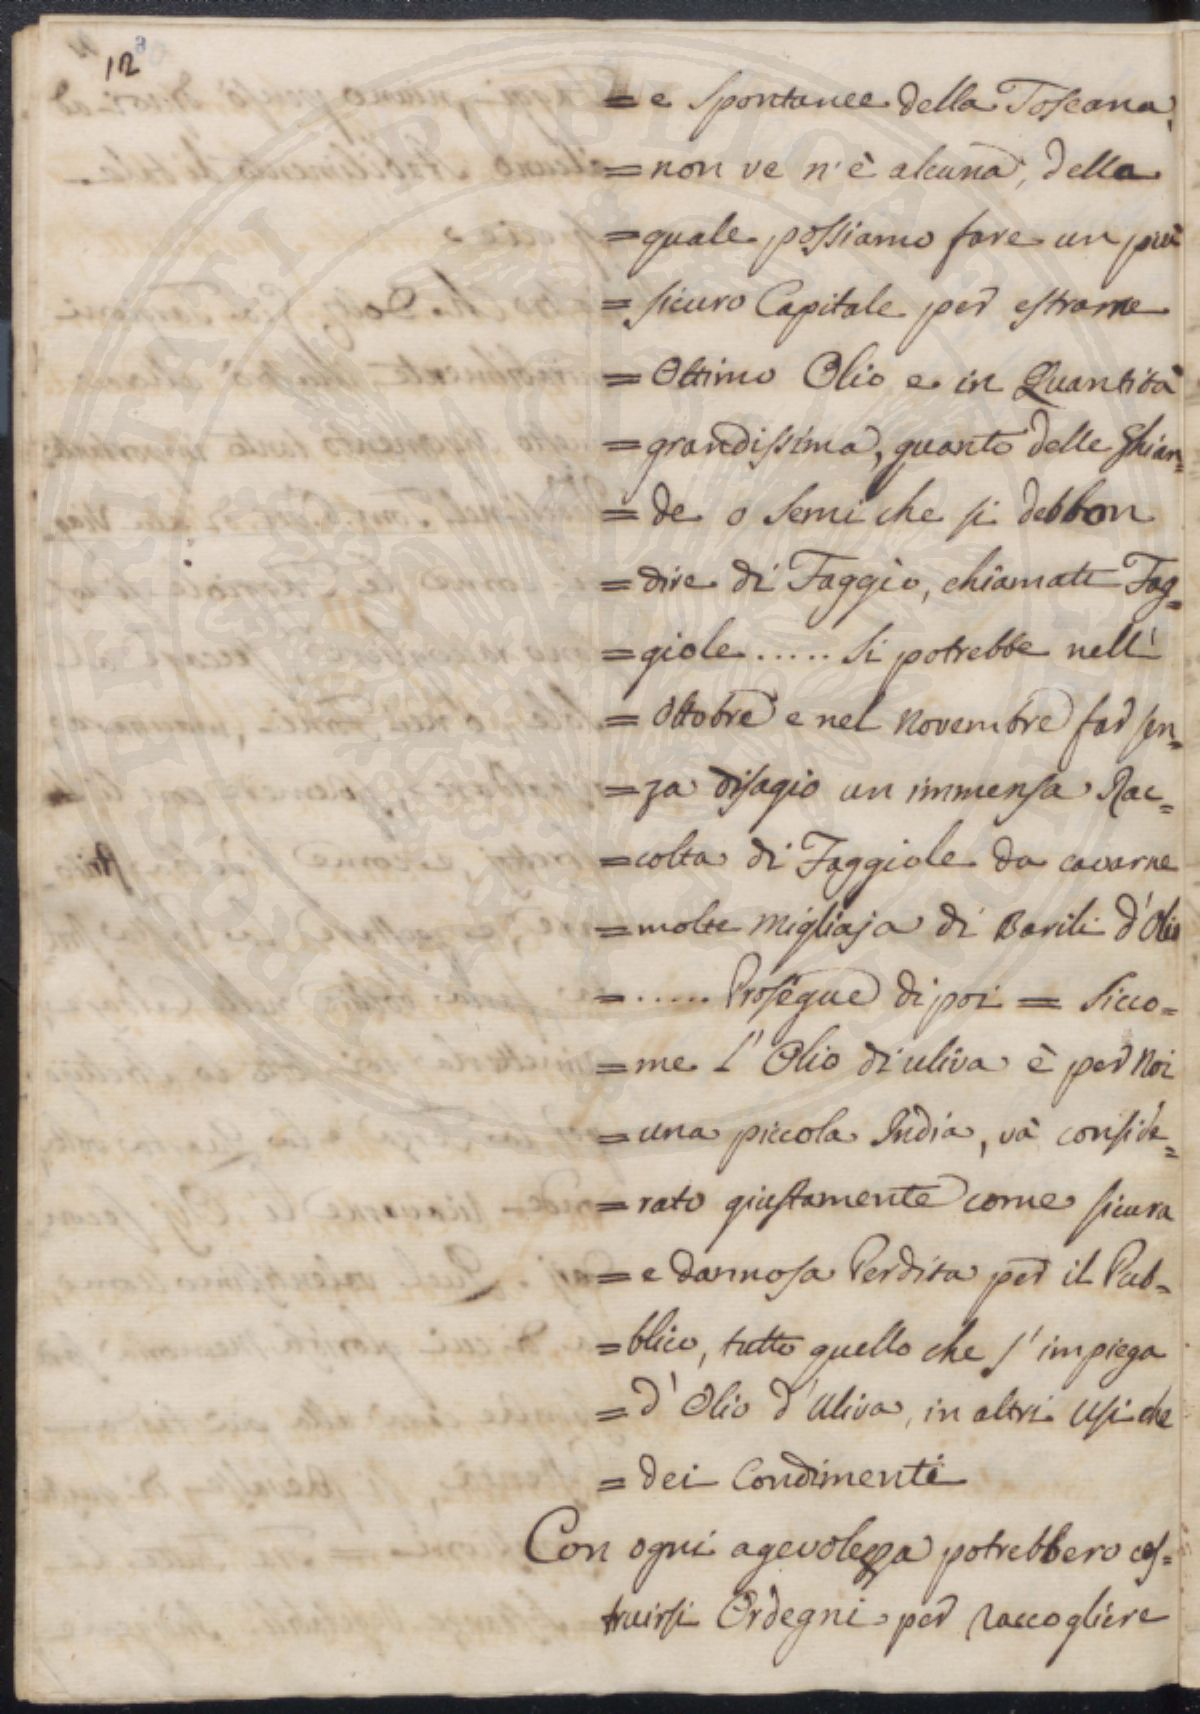 12
= e Spontanee della Toscana,
= non ve n'è alcuna, della
= quale possiamo fare un più
= sicuro Capitale per estrarne
= Ottimo Olio e in Quantità
= grandissima, quanto delle Ghian=
= de o Semi che si debbon
= dire di Faggio, chiamate Fag=
= giole ..... Si potrebbe nell'
= Ottobre e nel Novembre far sen=
= za disagio un immensa Rac=
= colta di Faggiole da cavarne
= molte Migliaja di Barili d'Olio
= ..... Prosegue di poi = Sicco=
= me L'Olio di uliva è per Noi
= una piccola India, và conside=
= rato giustamente come sicura
= e dannosa Perdita per il Pub=
= blico, tutto quello che s'impiega
= d'Olio d'Uliva, in altri Usi che
= dei Condimenti
Con ogni agevolezza potrebbero cos=
truirsi Ordegni per raccogliere